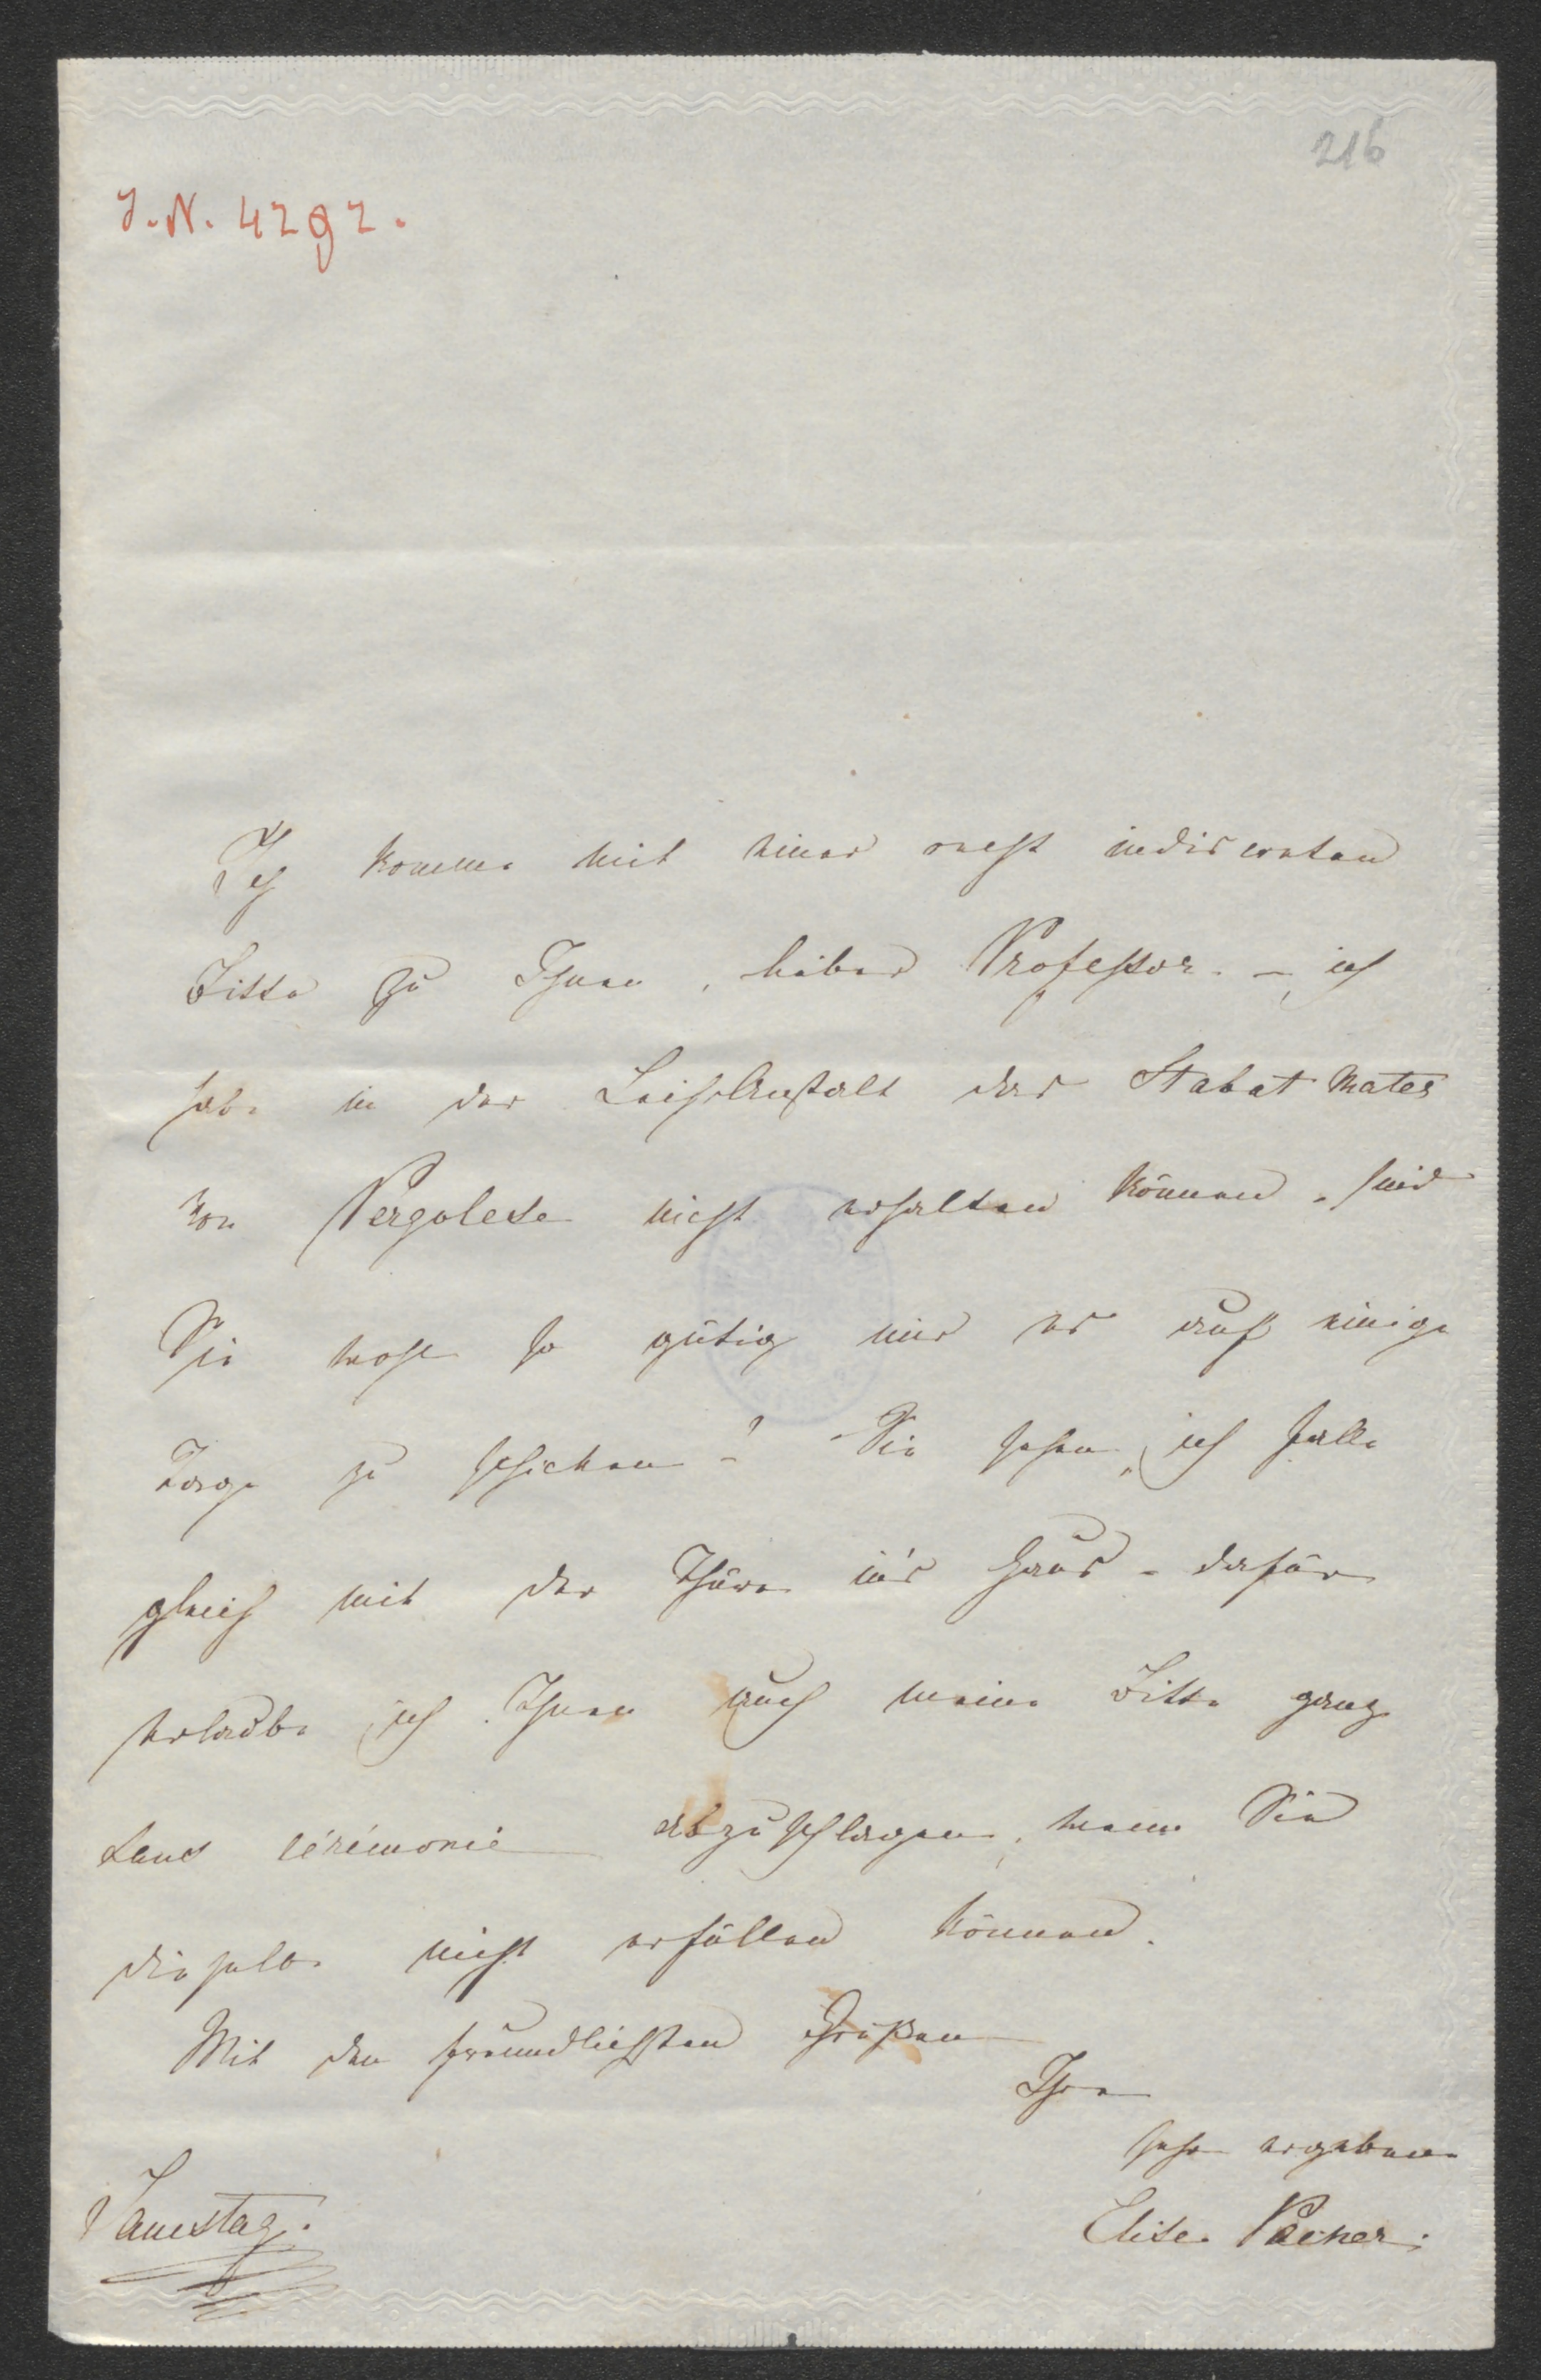 216
J. N. 4292.
Ich komme mit einer recht indiscreten
Bitte zu Ihnen, lieber Professor. – ich
habe in der Leihanstalt das Stabat Mater
von Pergolese nicht erhalten können. sind
Sie wohl so gütig mir es auf einige
Tage zu schicken –? Sie sehen, ich falle
gleich mit der Thüre in's Haus – dafür
erlaube ich Ihnen auch meine Bitte ganz
sans cérémonie abzuschlagen, wenn Sie
dieselbe nicht erfüllen können.
Mit den freundlichsten Grüßen
Ihre
sehr ergebene
Elise Pacher.
Samstag.